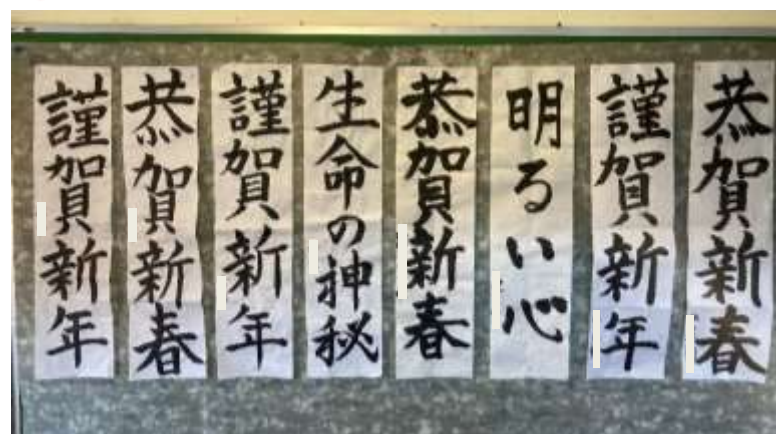 恭賀新春
謹賀新年
明るい心
恭賀新春
生命の神秘
謹賀新年
恭賀新春
謹賀新年